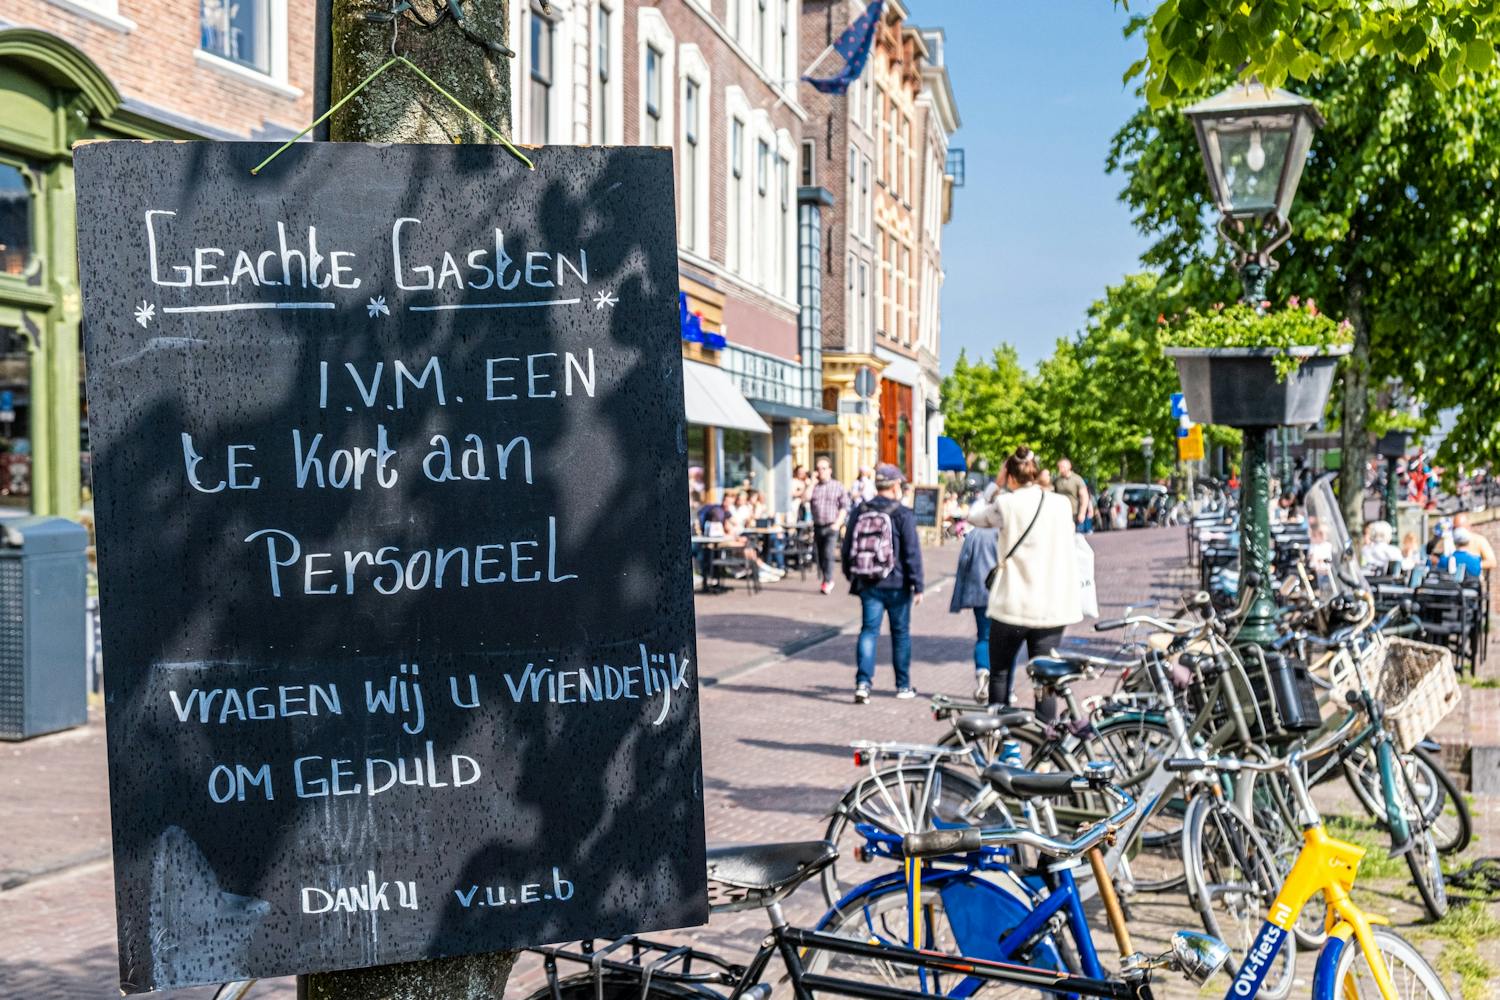 Geachte Gasten
I.V.M. EEN
te kort aan
Personeel
vragen wij u vriendelijk
om geduld
Dank u v.u.e.b
OV-fiets.nl